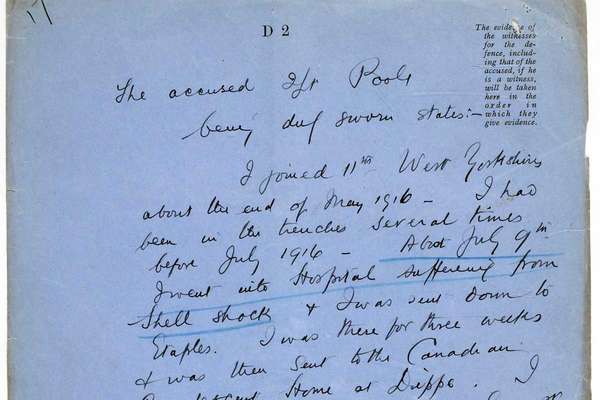 D 2
The evidence of
the witnesses
for the de-
fence, includ-
ing that of the
accused, if he
is a witness,
will be taken
here in the
order in
which they
give evidence.
The accused Poole
being duly sworn states:—
I joined 11th West Yorkshires
about the end of May 1916 — I had
been in the trenches several times
before July 1916 — About July 9th
I went into Hospital suffering from
Shell shock & I was sent down to
Etaples. I was there for three weeks
& was then sent to the Canadian
Home at Dieppe. I